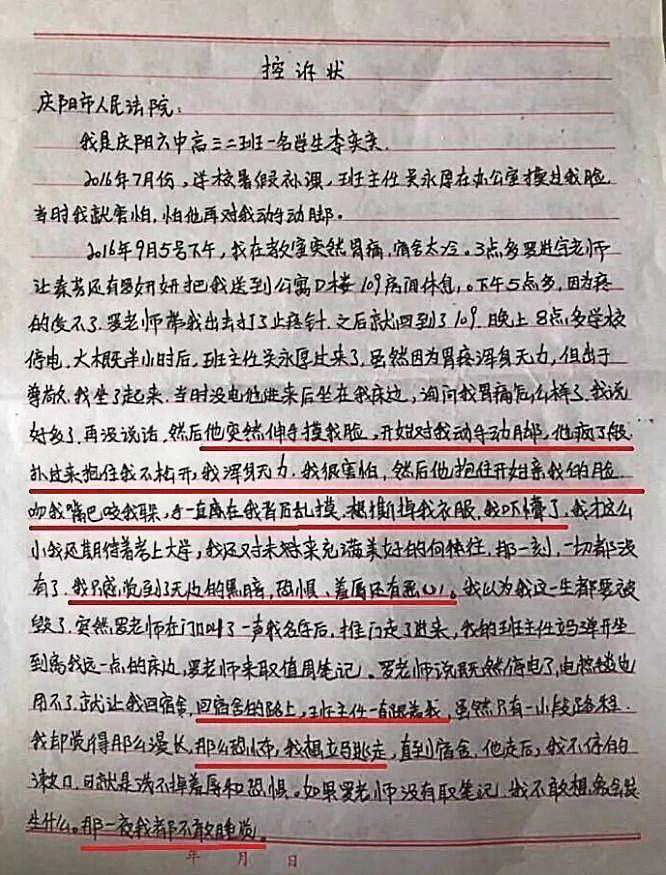 控诉状
庆阳市人民法院：
我是庆阳六中高三二班一名学生李奕奕.
2016年7月份，学校暑假补课，班主任吴永厚在办公室摸过我脸.
当时我就害怕，怕他再对我动手动脚。
2016年9月5号下午，我在教室突然胃痛，宿舍太冷。3点多罗进宇老师
让秦芳还有罗妍妍把我送到公寓D楼109房间休息，。下午5点多，因为疼
的受不了.罗老师带我出去打了止疼针.之后就回到了109.晚上8点多学校
停电.大概半小时后，班主任吴永厚过来了.虽然因为胃疼浑身无力，但出于
尊敬.我坐了起来.当时没电他进来后坐在我床边，询问我胃痛怎么样了.我说
好多了.再没说话.然后他突然伸手摸我脸，开始对我动手动脚，他疯了般
扑过来抱住我不松开，我浑身无力.我很害怕.然后他抱住开始亲我的脸
吻我嘴巴咬我耳朵，手一直在我背后乱摸.想撕掉我衣服.我吓懵了.我才这么
小我还期待着考上大学，我还对未来充满美好的向往.那一刻，一切都没
有了.我只感觉到了无边的黑暗，恐惧、羞辱还有恶心。我以为我这一生都要被
毁了.突然罗老师在门口叫了一声我名字后，推门走了进来，我的班主任立马弹开坐
到离我远一点的床边，罗老师来取值周笔记。罗老师说既然停电了，电热毯也
用不了.就让我回宿舍.回宿舍的路上，班主任一直跟着我，虽然只有一小段路程.
我却觉得那么漫长.那么恐怖，我想立马逃走，直到宿舍.他走后，我不停的
漱口.可就是洗不掉羞辱和恐惧。如果罗老师没有取笔记.我不敢想象会发
生什么。那一夜我都不敢睡觉。
年 月 日